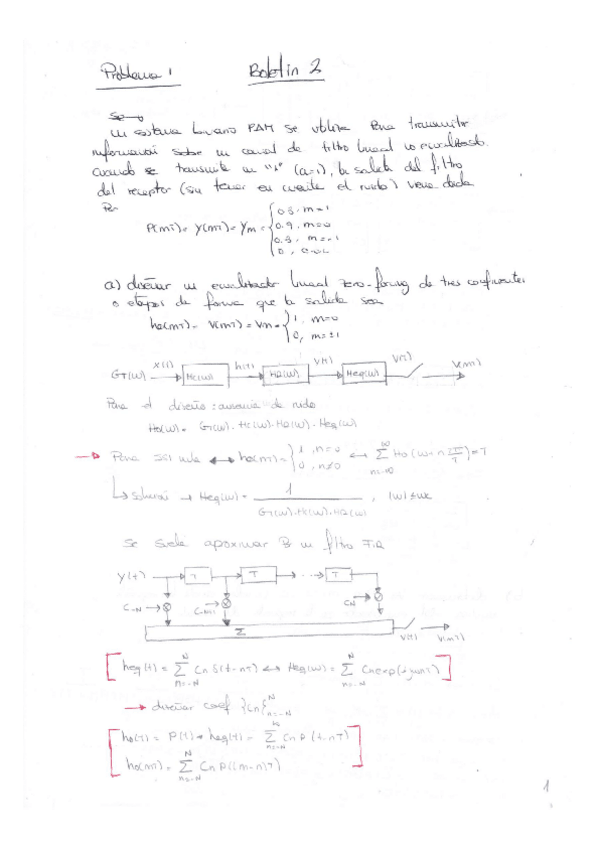 Problema 1 Boletín 2
un sistema binario PAM se utiliza para transmitir
información sobre un canal de filtro lineal no ecualizado.
cuando se transmite un "1" (a=1), la salida del filtro
del receptor (sin tener en cuenta el ruido) viene dada
Por
P(mT) = Y(mT) = Ym = { 0.3, m=1
0.9, m=0
0.3, m=-1
0, c.o.c
a) diseñar un ecualizador lineal zero-forcing de tres coeficientes
o etapas de forma que la salida sea
ho(mT) = V(mT) = Vm = { 1, m=0
0, m=±1
GT(ω) X(t) Hc(ω) h(t) HR(ω) Y(t) Heq(ω) V(t) V(mT)
Para el diseño: ausencia de ruido
Ho(ω) = GT(ω)·Hc(ω)·HR(ω)·Heq(ω)
→ Para ISI nula ↔ ho(mT) = { 1, n=0
0, n≠0 ↔ ∑ n=-∞ ∞ Ho(ω+n 2π/T) = T
↳ solución → Heq(ω) = 1 / GT(ω)·Hc(ω)·HR(ω) , |ω| ≤ ωc
se suele aproximar un filtro FIR
Y(t) T T ... T
C-N C-N+1 CN
Σ V(t) V(mT)
heq(t) = ∑ n=-N N Cn δ(t-nT) ↔ Heq(ω) = ∑ n=-N N Cn exp(-jωnT)
→ diseñar coef {Cn} n=-N N
ho(t) = P(t) * heq(t) = ∑ n=-N N Cn P(t-nT)
ho(mT) = ∑ n=-N N Cn P((m-n)T)
1